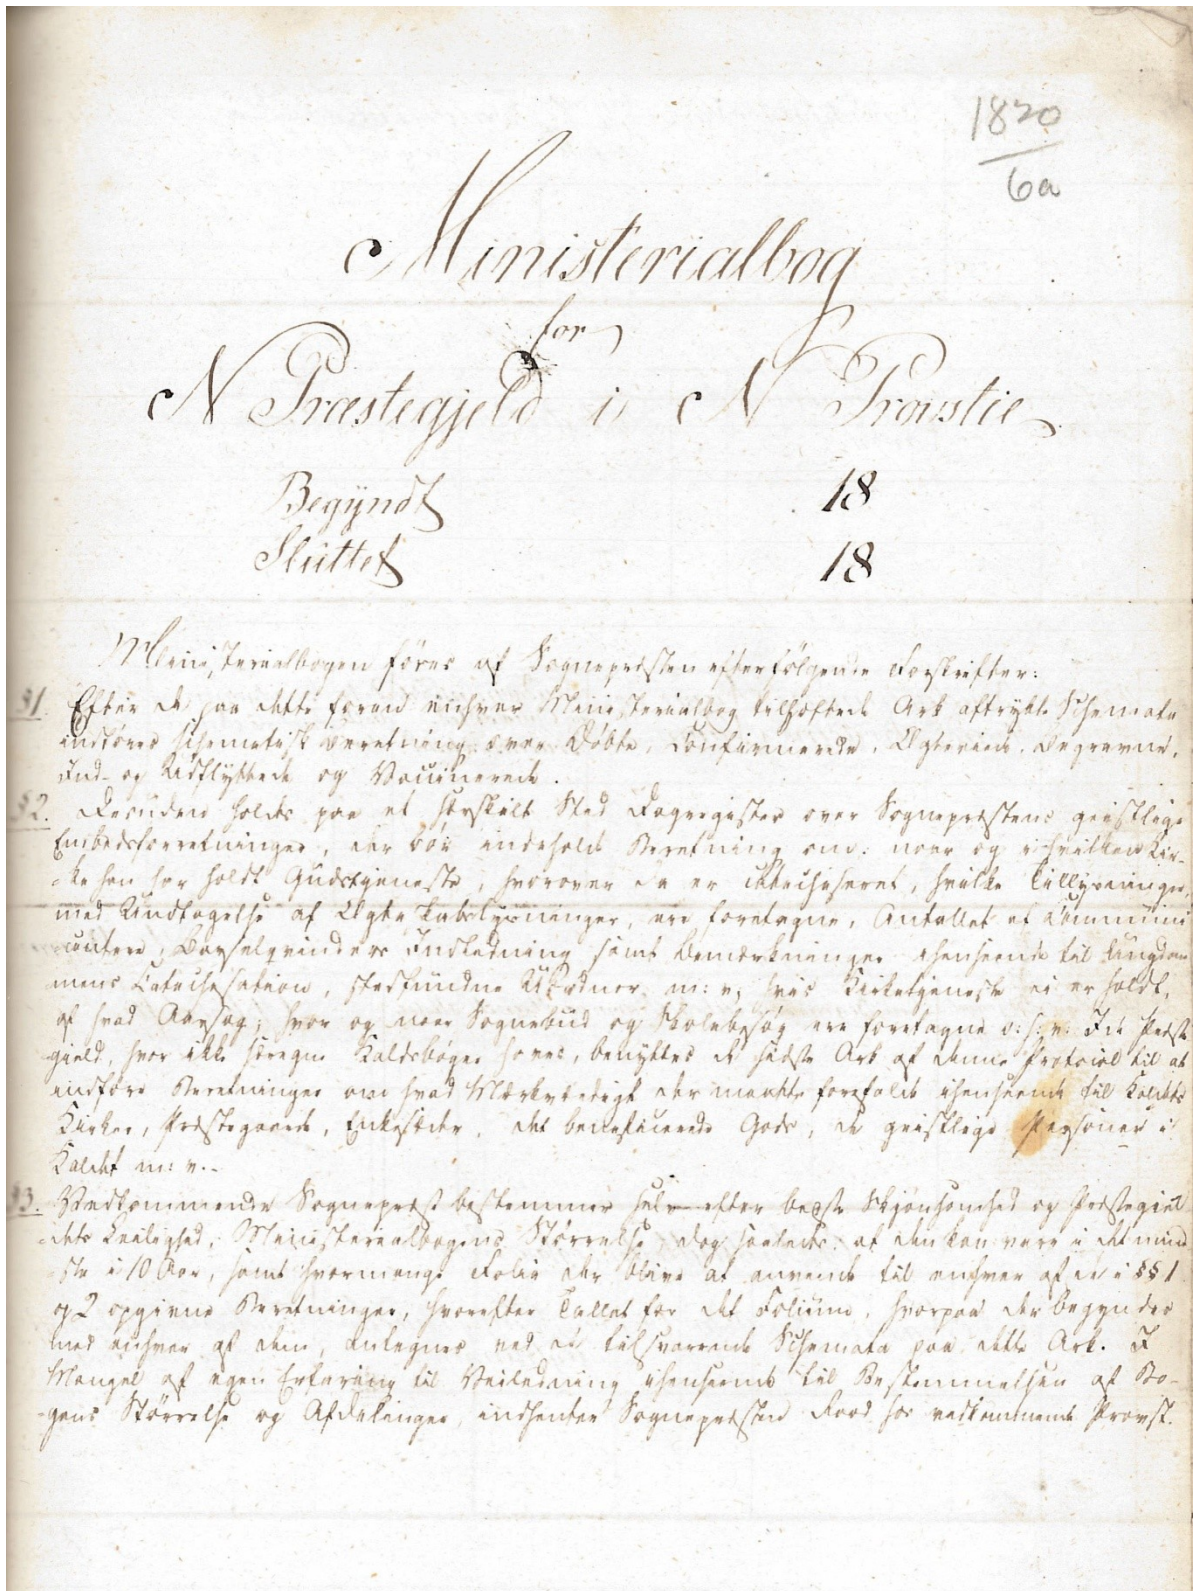 1820
6a
Ministerialbog
for
N Præstegjeld i N Provstie
Begyndt 18
Sluttet 18
Ministerialbogen føres af Sognepræsten efter følgende Forskrifter:
§1. Efter de paa dette foran enhver Ministerialbog tilhæftede Ark aftrykte Schemata
indføres schematisk Beretning over Døbte, Confirmerede, Ægteviede, Begravne,
Ind- og Udflyttede og Vaccinerede.
§2. Desuden holdes paa et særskilt Sted Dagregister over Sognepræstens geistlige
Embedsforretninger, der bør indeholde Beretning om: naar og i hvilken Kir-
-ke han har holdt Gudstjeneste, hvorover da er catechiseret, hvilke Tillysninger,
med Undtagelse af Ægteskabslysninger, ere foretagne, Antallet af Communi-
-cantere, Barselqvinders Indledning samt Bemærkninger ihenseende til Ungdom-
mens Catechisation, stedfundne m: v; hvis Kirketjeneste ei er holdt,
af hvad Aarsag; hvor og naar Sognebud og Skolebesøg ere foretagne o: s: v: I de Præste-
-gjeld, hvor ikke særegne Kaldsbøger haves, benyttes de sidste Ark af denne Protocol til at
indføre Beretninger om hvad Mærkværdigt der maatte forefalde ihenseende til Kaldets
Kirker, Præstegaarde, Enkesæder, det beneficerede Gods, de geistlige Personer i
Kaldet m: v.-
§3. Vedkommende Sognepræst bestemmer selv efter bedste Skjønsomhed og Præstegjel-
-dets Leilighed, Ministerialbogens Størrelse, dog saaledes: at den kan vare i det mind-
-ste i 10 Aar, samt hvormange Folie der blive at anvende til enhver af de i §§1
og 2 opgivne Beretninger, hvorefter Tallet for det Folium, hvorpaa der begyndes
med enhver af dem, antegnes ved de tilsvarende Schemata paa dette Ark. I
Mangel af egen Erfaring til Veiledning ihenseende til Bestemmelsen af Bo-
-gens Størrelse og Afdelinger, indhenter Sognepræsten Raad hos vedkommende Provst.